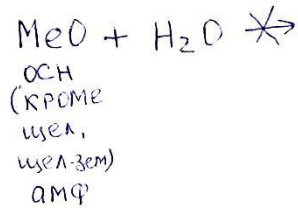 MeO + H₂O ↛
ОСН
(КРОМЕ
щел,
щел-зем)
АМФ